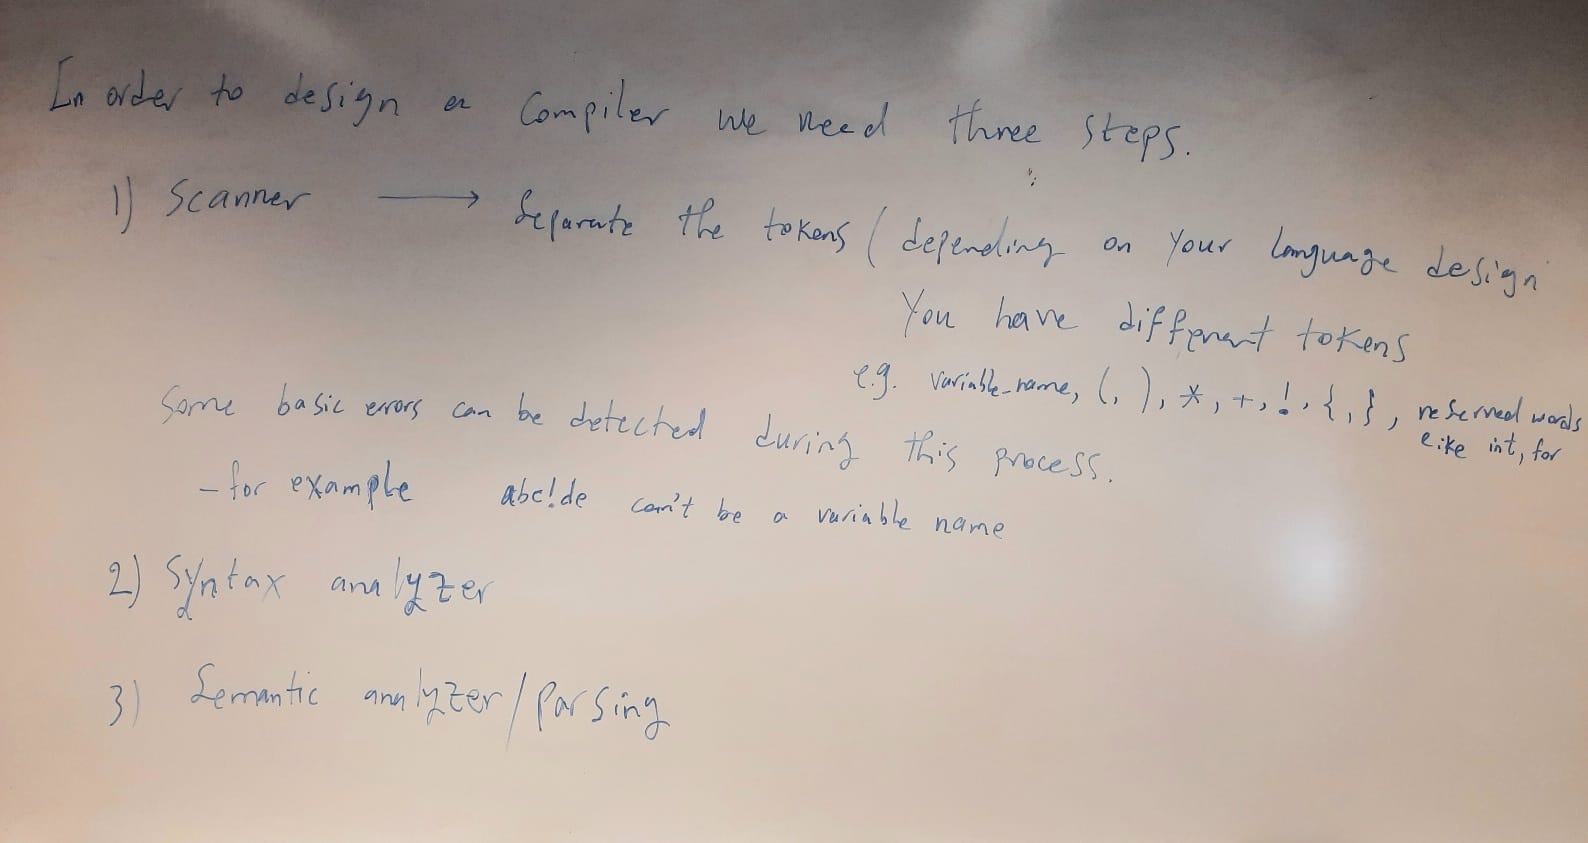 In order to design a Compiler we need three steps.
1) Scanner → Separate the tokens ( depending on your language design
You have different tokens
e.g. variable_name, (, ), *, +, !, {, }, reserved words
like int, for
Some basic errors can be detected during this process.
- for example abc!de can't be a variable name
2) Syntax analyzer
3) Semantic analyzer/Parsing